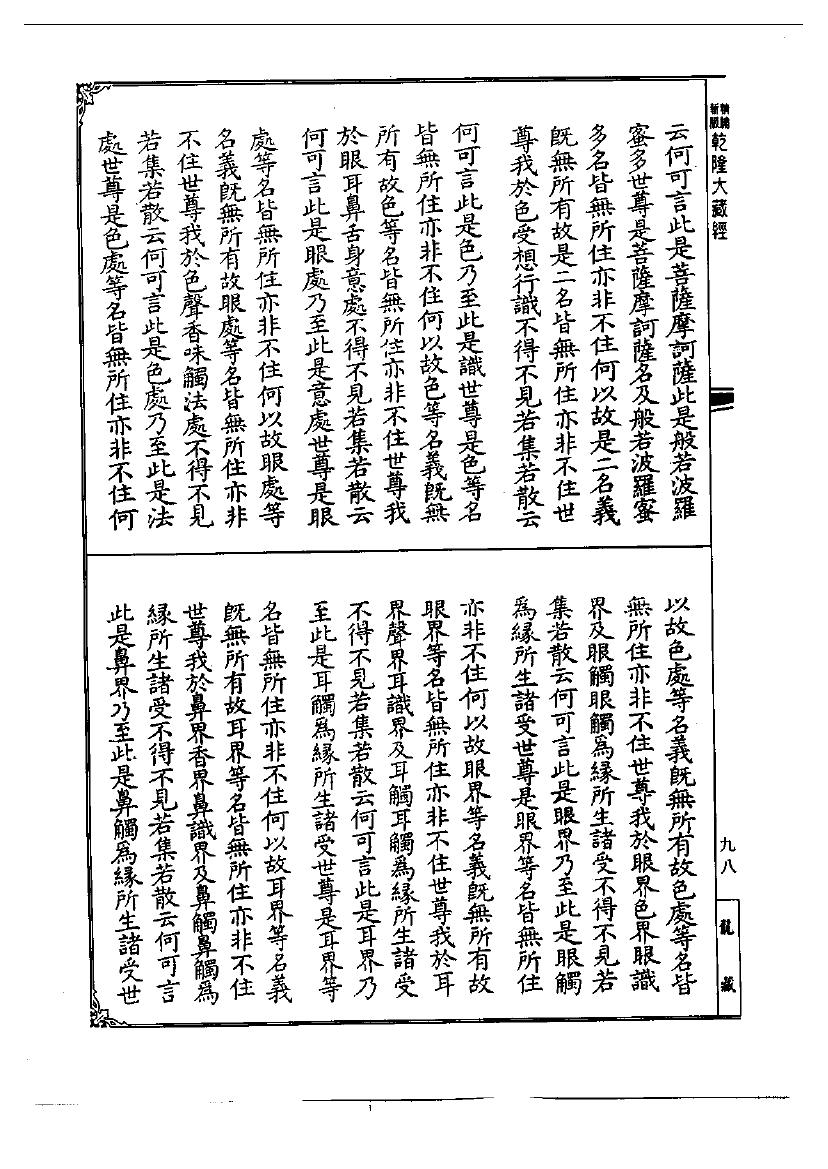 精縮
新版
乾隆大藏經
云何可言此是菩薩摩訶薩此是般若波羅
蜜多世尊是菩薩摩訶薩名及般若波羅蜜
多名皆無所住亦非不住何以故是二名義
旣無所有故是二名皆無所住亦非不住世
尊我於色受想行識不得不見若集若散云
何可言此是色乃至此是識世尊是色等名
皆無所住亦非不住何以故色等名義旣無
所有故色等名皆無所住亦非不住世尊我
於眼耳鼻舌身意處不得不見若集若散云
何可言此是眼處乃至此是意處世尊是眼
處等名皆無所住亦非不住何以故眼處等
名義旣無所有故眼處等名皆無所住亦非
不住世尊我於色聲香味觸法處不得不見
若集若散云何可言此是色處乃至此是法
處世尊是色處等名皆無所住亦非不住何
以故色處等名義旣無所有故色處等名皆
無所住亦非不住世尊我於眼界色界眼識
界及眼觸眼觸爲緣所生諸受不得不見若
集若散云何可言此是眼界乃至此是眼觸
爲緣所生諸受世尊是眼界等名皆無所住
亦非不住何以故眼界等名義旣無所有故
眼界等名皆無所住亦非不住世尊我於耳
界聲界耳識界及耳觸耳觸爲緣所生諸受
不得不見若集若散云何可言此是耳界乃
至此是耳觸爲緣所生諸受世尊是耳界等
名皆無所住亦非不住何以故耳界等名義
旣無所有故耳界等名皆無所住亦非不住
世尊我於鼻界香界鼻識界及鼻觸鼻觸爲
緣所生諸受不得不見若集若散云何可言
此是鼻界乃至此是鼻觸爲緣所生諸受世
九八
龍藏